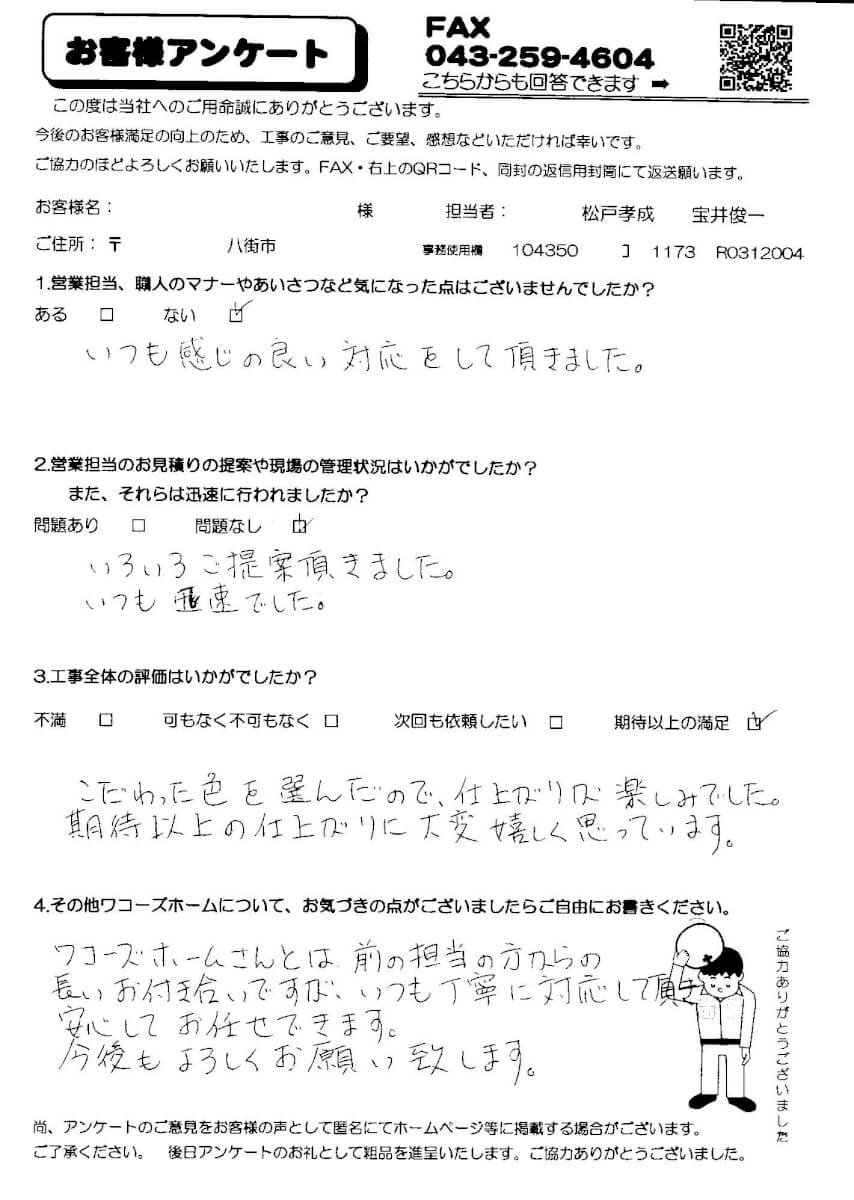 お客様アンケート
FAX
043-259-4604
こちらからも回答できます ➡
この度は当社へのご用命誠にありがとうございます。
今後のお客様満足の向上のため、工事のご意見、ご要望、感想などいただければ幸いです。
ご協力のほどよろしくお願いいたします。FAX・右上のQRコード、同封の返信用封筒にて返送願います。
お客様名： 様 担当者： 松戸孝成 宝井俊一
ご住所：〒 八街市 事務使用欄 104350 コ 1173 R0312004
1.営業担当、職人のマナーやあいさつなど気になった点はございませんでしたか？
ある □ ない ☑
いつも感じの良い対応をして頂きました。
2.営業担当のお見積りの提案や現場の管理状況はいかがでしたか？
また、それらは迅速に行われましたか？
問題あり □ 問題なし ☑
いろいろご提案頂きました。
いつも 速でした。
3.工事全体の評価はいかがでしたか？
不満 □ 可もなく不可もなく □ 次回も依頼したい □ 期待以上の満足 ☑
こだわった色を選んだので、仕上がりが楽しみでした。
期待以上の仕上がりに大変嬉しく思っています。
4.その他ワコーズホームについて、お気づきの点がございましたらご自由にお書きください。
ワコーズホームさんとは前の担当の方からの
長いお付き合いですが、いつも丁寧に対応して頂き
安心してお任せできます。
今後もよろしくお願い致します。
ご協力ありがとうございました
尚、アンケートのご意見をお客様の声として匿名にてホームページ等に掲載する場合がございます。
ご了承ください。 後日アンケートのお礼として粗品を進呈いたします。ご協力ありがとうございました。